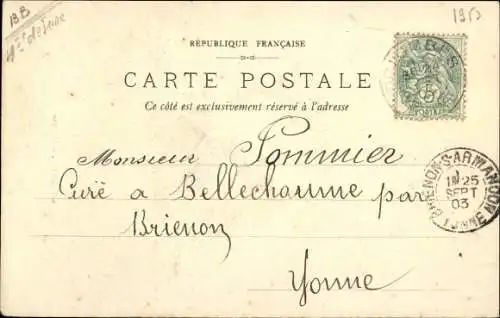 BB
1903
RÉPUBLIQUE FRANÇAISE
CARTE POSTALE
Ce côté est exclusivement réservé à l'adresse
Monsieur Pommier
Curé à Bellechaume par
Brienon
Yonne
BRIENON-S-ARMANÇON
25
SEPT
03
YONNE